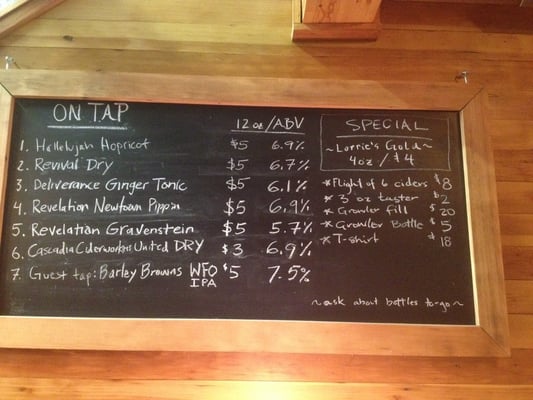 ON TAP
12 oz / ABV
1. Hallelujah Hopricot $5 6.9%
2. Revival Dry $5 6.7%
3. Deliverance Ginger Tonic $5 6.1%
4. Revelation Newtown Pippin $5 6.9%
5. Revelation Gravenstein $5 5.7%
6. Cascadia Ciderworkers United DRY $3 6.9%
7. Guest tap: Barley Browns WFO IPA $5 7.5%
SPECIAL
~Lorrie's Gold~
4oz / $4
*Flight of 6 ciders $8
* 3 oz taster $2
* Growler fill $20
* Growler Bottle $5
* T-shirt $18
~ask about bottles to-go~